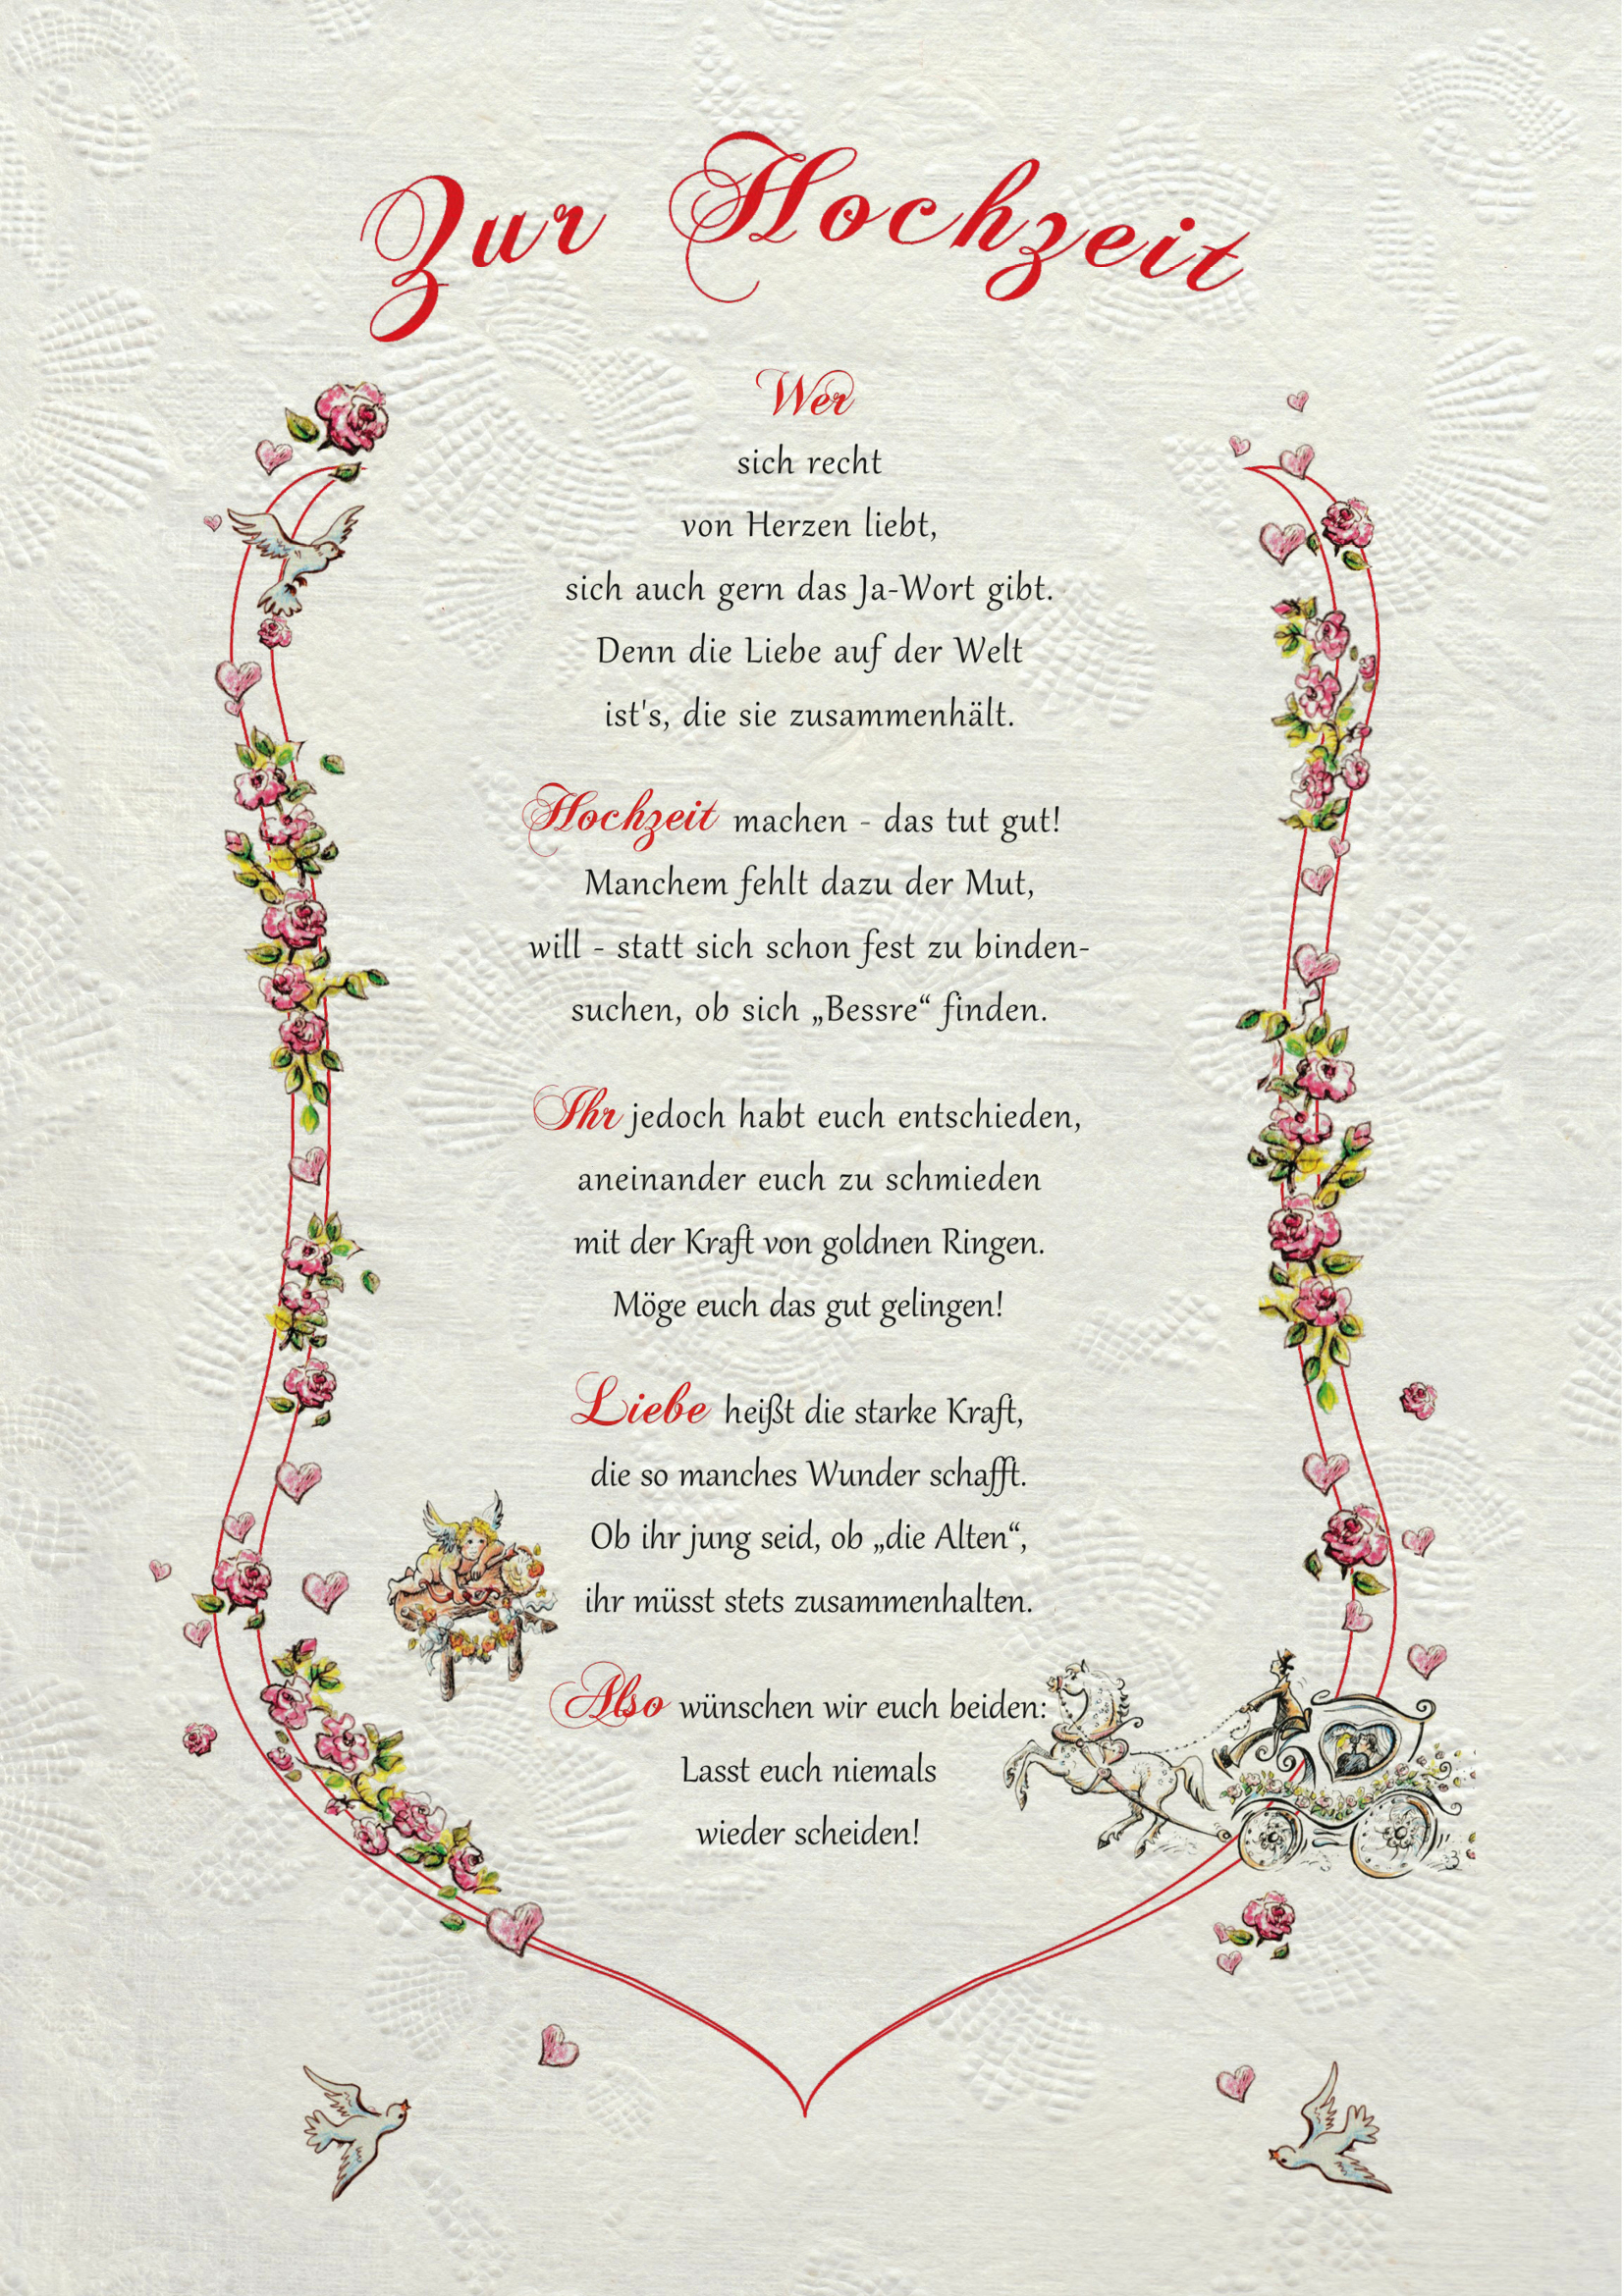 Zur Hochzeit
Wer
sich recht
von Herzen liebt,
sich auch gern das Ja-Wort gibt.
Denn die Liebe auf der Welt
ist's, die sie zusammenhält.
Hochzeit machen - das tut gut!
Manchem fehlt dazu der Mut,
will - statt sich schon fest zu binden-
suchen, ob sich „Bessre“ finden.
Ihr jedoch habt euch entschieden,
aneinander euch zu schmieden
mit der Kraft von goldnen Ringen.
Möge euch das gut gelingen!
Liebe heißt die starke Kraft,
die so manches Wunder schafft.
Ob ihr jung seid, ob „die Alten“,
ihr müsst stets zusammenhalten.
Also wünschen wir euch beiden:
Lasst euch niemals
wieder scheiden!